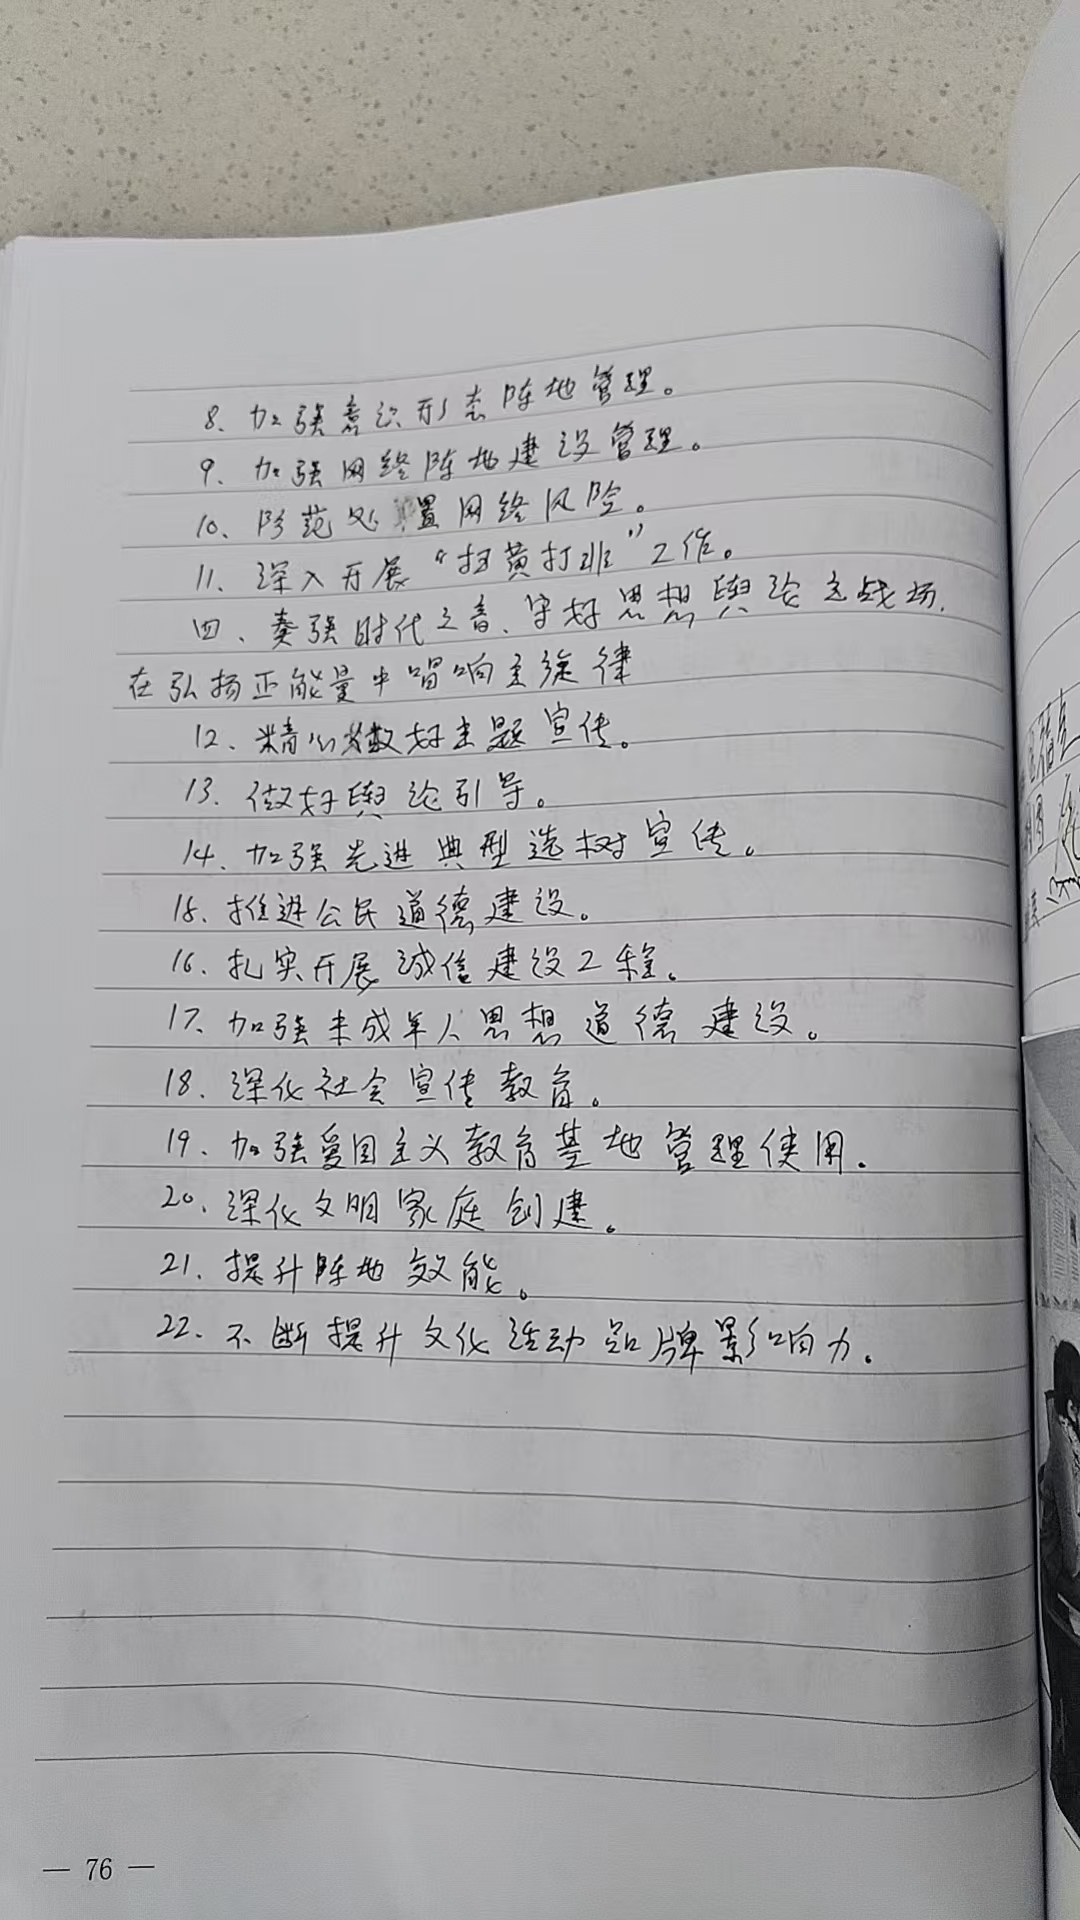 8、加强意识形态阵地管理。
9、加强网络阵地建设管理。
10、防范处置网络风险。
11、深入开展“扫黄打非”工作。
四、奏强时代之音、守好思想舆论主战场，
在弘扬正能量中唱响主旋律
12、精心做好主题宣传。
13、做好舆论引导。
14、加强先进典型选树宣传。
15、推进公民道德建设。
16、扎实开展诚信建设工程。
17、加强未成年人思想道德建设。
18、深化社会宣传教育。
19、加强爱国主义教育基地管理使用。
20、深化文明家庭创建。
21、提升阵地效能。
22、不断提升文化活动品牌影响力。
— 76 —